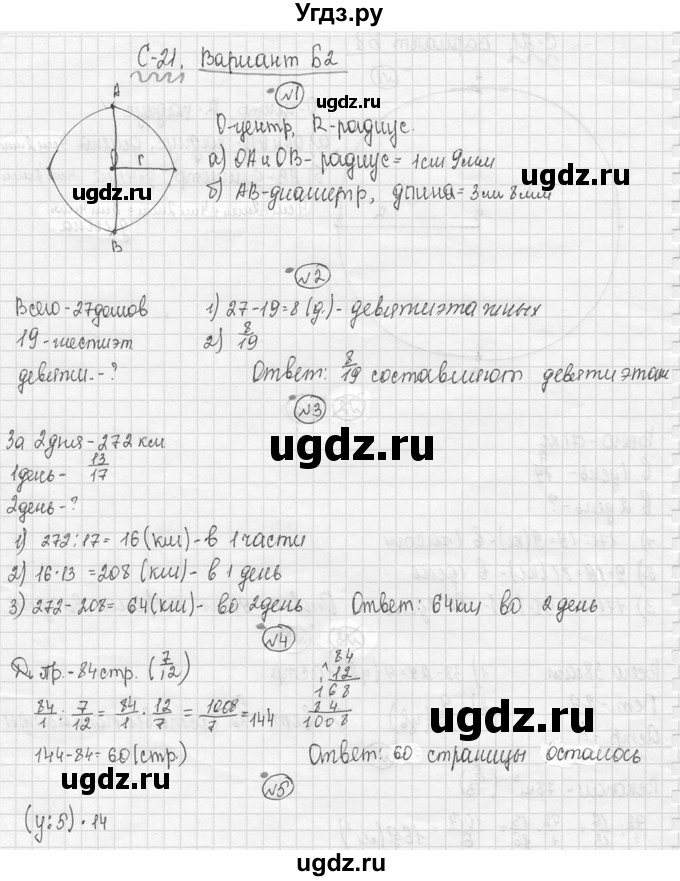 Угдз.ру
С-21. Вариант Б2
№1
A
O
r
B
О-центр, R-радиус.
а) OA и OB- радиус = 1см 9мм
б) AB-диаметр, длина=3см 8мм
№2
Всего-27домов
19 - шестиэт
девяти. - ?
1) 27-19=8 (д.)- девятиэтажных
2) 8/19
Ответ: 8/19 составляют девятиэтаж
№3
За 2дня-272 км
1день- 13/17
2день-?
1) 272:17= 16(км)-в 1 части
2) 16·13 =208 (км)- в 1 день
3) 272-208=64(км)- во 2день Ответ: 64км во 2 день
№4
Пр.-84стр. (7/12)
84/1 : 7/12 = 84/1 · 12/7 = 1008/7 =144
84
12
168
84
1008
144-84=60(стр.) Ответ: 60 страницы осталось
№5
(y:5)·14
ugdz.ru
ugdz.ru
ugdz.ru
ugdz.ru
ugdz.ru
ugdz.ru
ugdz.ru
ugdz.ru
ugdz.ru
ugdz.ru